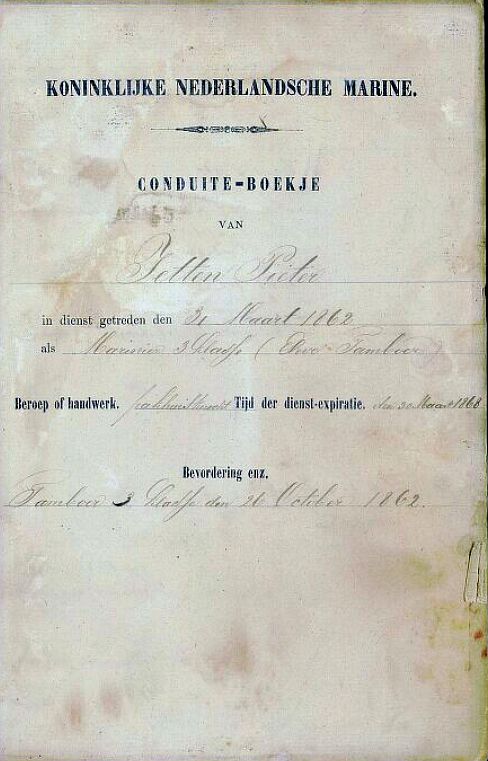 KONINKLIJKE NEDERLANDSCHE MARINE.
CONDUITE=BOEKJE
VAN
Jetten Pieter
in dienst getreden den 31 Maart 1862
als Marinier 3 Klasse (Eleve Tamboer)
Beroep of handwerk. pakhuisknecht Tijd der dienst-expiratie. den 30 Maart 1868
Bevordering enz.
Tamboer 3 Klasse den 26 October 1862.